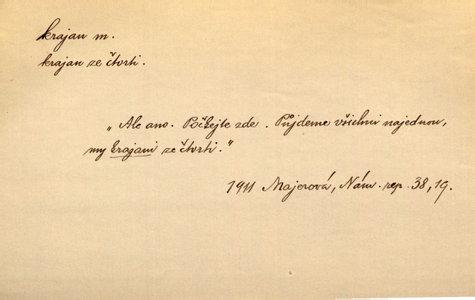 krajan m.
krajan ze čtvrti.
„Ale ano. Počkejte zde. Půjdeme všichni najednou,
my krajani ze čtvrti.“
1911 Majerová, Nám. rep. 38, 19.